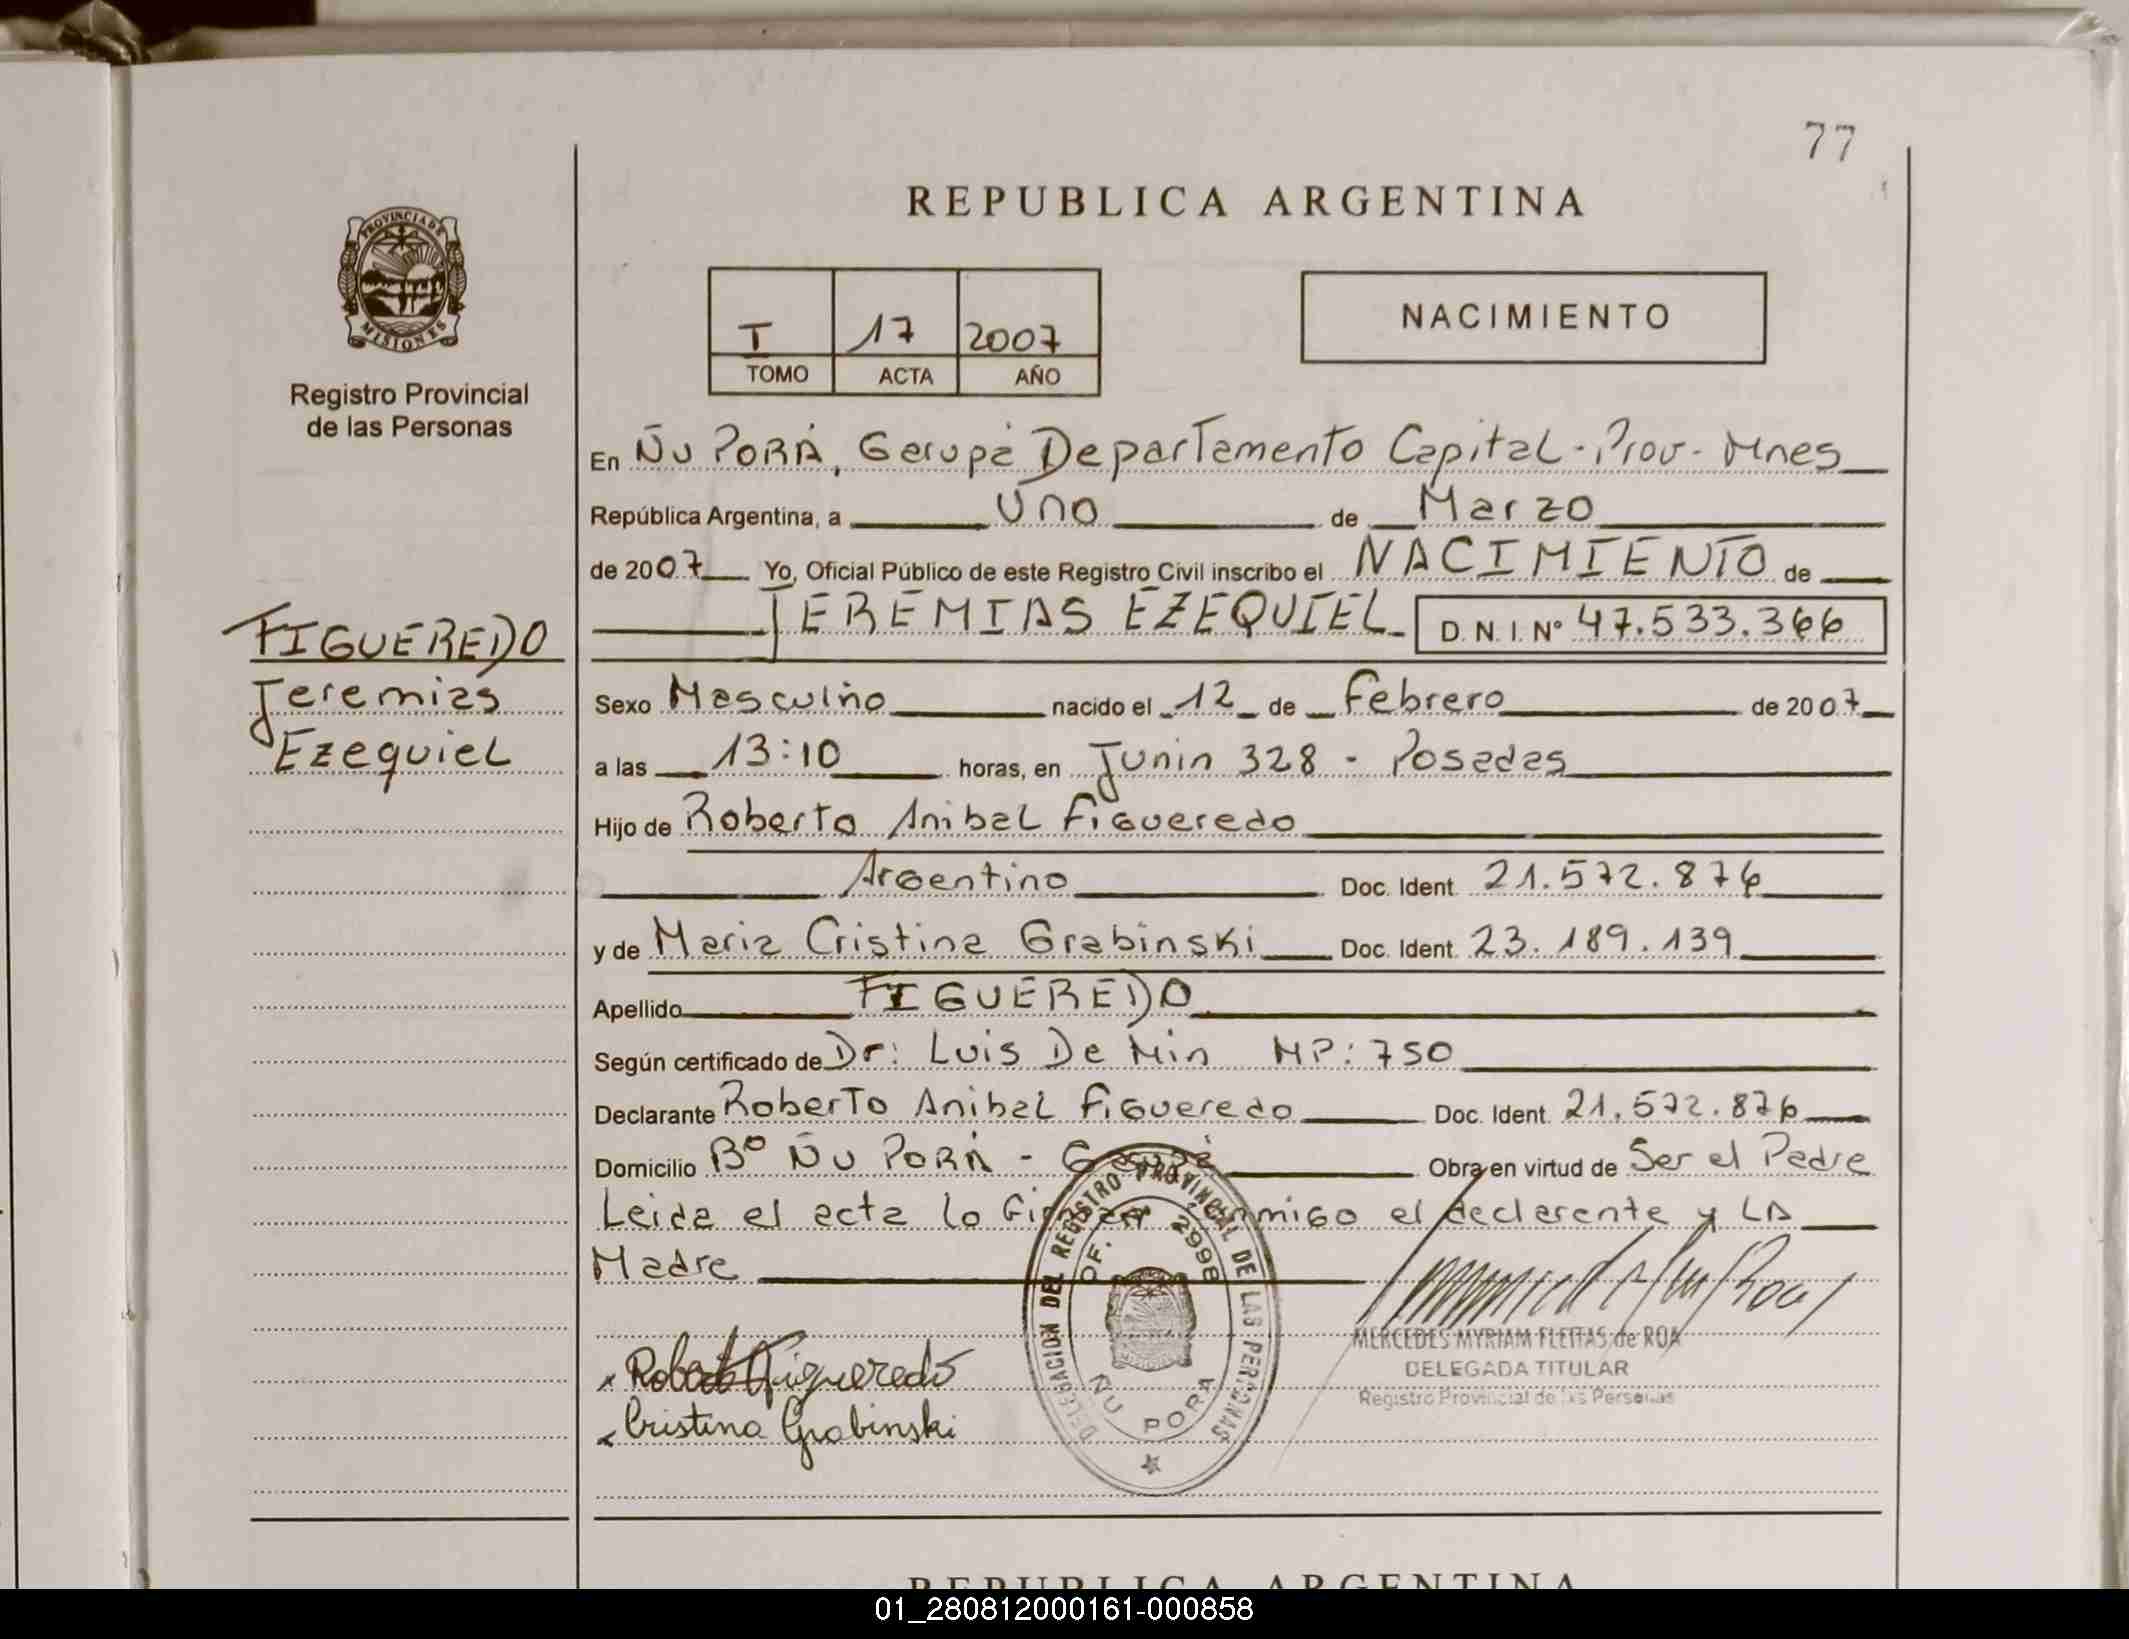 77
REPUBLICA ARGENTINA
PROVINCIA DE
MISIONES
Registro Provincial
de las Personas
T 17 2007
TOMO ACTA AÑO
NACIMIENTO
En Ñu PORÁ, Garupá Departamento Capital - Prov - Mnes
República Argentina, a Uno de Marzo
de 2007 Yo, Oficial Público de este Registro Civil inscribo el NACIMIENTO de
JEREMIAS EZEQUIEL D.N.I. Nº 47.533.366
FIGUEREDO
Jeremias
Ezequiel
Sexo Masculino nacido el 12 de Febrero de 2007
a las 13:10 horas, en Junin 328 - Posadas
Hijo de Roberto Anibal Figueredo
Argentino Doc. Ident. 21.572.876
y de Maria Cristina Grabinski Doc. Ident. 23.189.139
Apellido FIGUEREDO
Según certificado de Dr: Luis De Min MP: 750
Declarante Roberto Anibal Figueredo Doc. Ident. 21.572.876
Domicilio Bº Ñu PORÁ - Garupá Obra en virtud de Ser el Padre
Leida el acta lo firman conmigo el declarante y LA
Madre
Roberto Figueredo
Cristina Grabinski
DELEGACION DEL REGISTRO PROVINCIAL DE LAS PERSONAS
OF. 2998
ÑU PORA
MERCEDES MYRIAM FLEITAS de ROA
DELEGADA TITULAR
Registro Provincial de las Personas
REPUBLICA ARGENTINA
01_280812000161-000858